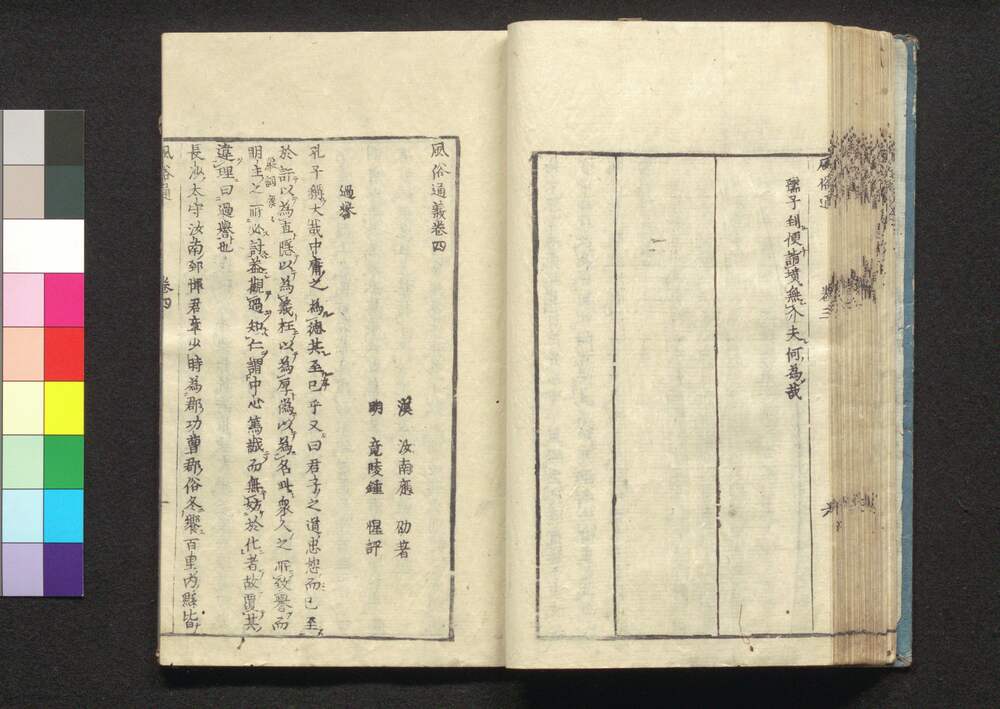 孺子利便諸墳無介夫何為哉
風俗通
卷三
風俗通義卷四
漢 汝南應 劭著
明 竟陵鍾 惺評
過譽
孔子稱大哉中庸之為德其至已乎又曰君子之道忠恕而已至
於訐以為直隱以為義枉以為厚偽以為名此衆人之所致譽而
明主之所必討蓋觀過知仁謂中心篤誠而無妨於化者故覆其
違理曰過譽也
長沙太守汝南郅惲君章少時為郡功曹郡俗冬饗百里內縣皆
風俗通
卷四